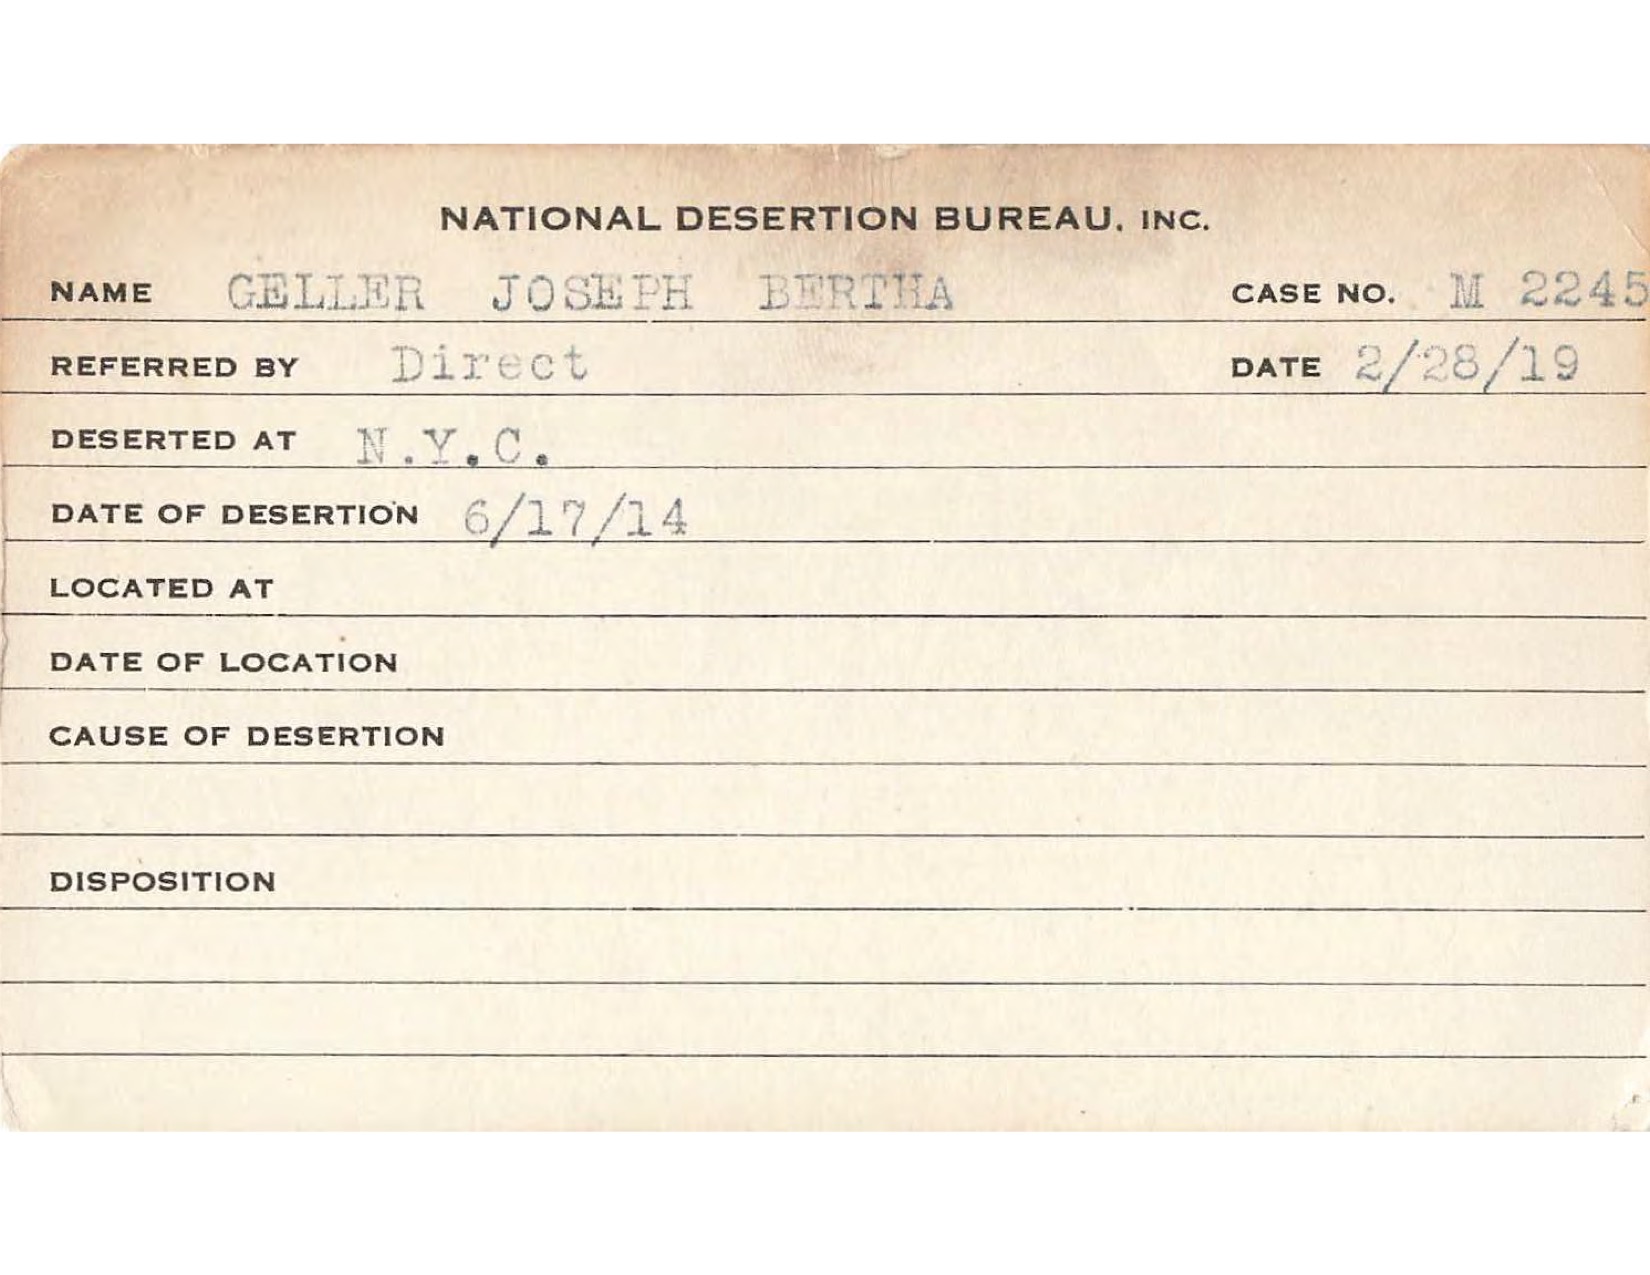 NATIONAL DESERTION BUREAU, INC.
NAME GELLER JOSEPH BERTHA CASE NO. M 2245
REFERRED BY Direct DATE 2/28/19
DESERTED AT N.Y.C.
DATE OF DESERTION 6/17/14
LOCATED AT
DATE OF LOCATION
CAUSE OF DESERTION
DISPOSITION